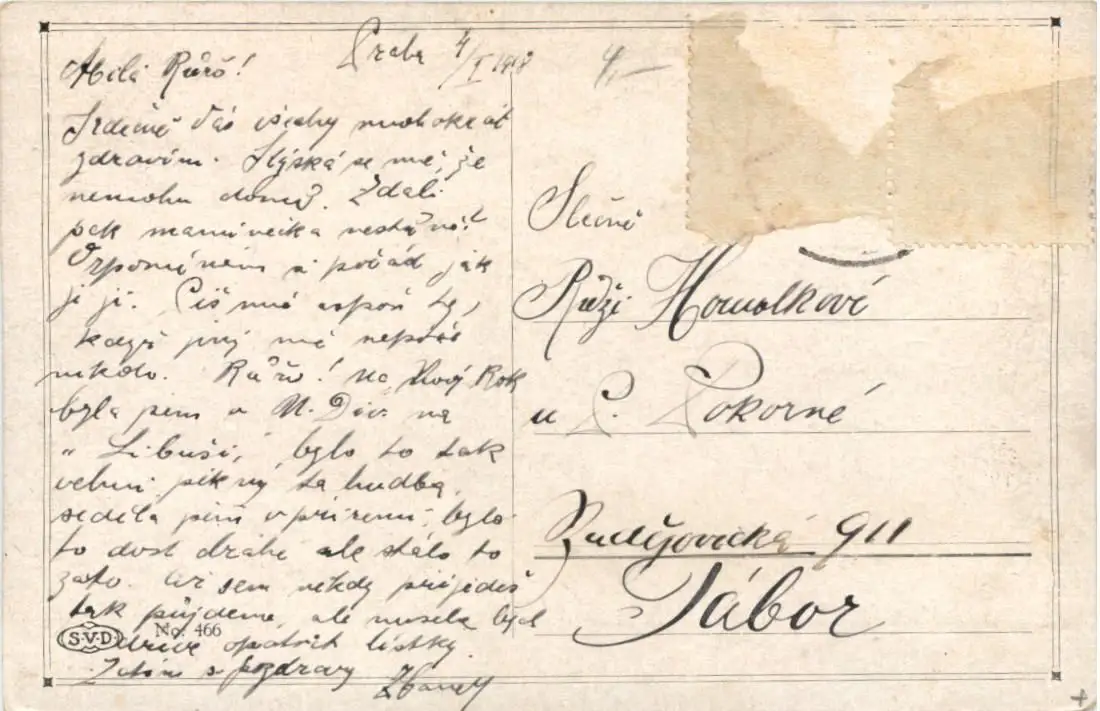 Praha 4/I 1918
4,—
Milá Růžo!
Srdečně Vás všechny mnohokrát
zdravím. Stýská se mě, že
nemohu domů. Zdali
pak maminečka nestůně?
Vzpomínám si pořád, jak
je jí. Piš mně aspoň ty,
když jiný mě nepíše
nikdo. Růžo! Na Nový Rok
byla jsem v N. Div. na
"Libuši", bylo to tak
velmi pěkný ta hudba,
seděla jsem v přízemí, bylo
to dost drahé ale stálo to
zato. Až sem někdy přijedeš
tak půjdeme, ale musela bych
dříve opatřit lístky.
Zatím s pozdravy
Slečně
Růži Homolkové
u P. Pokorné
Budějovická 911
Tábor
S.V.D.
No. 466